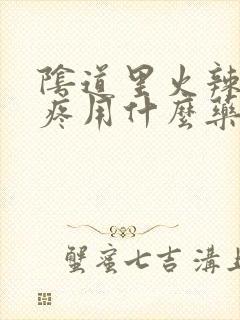 陰道里火辣
疼用什麼藥
蟹蜜七吉溝上